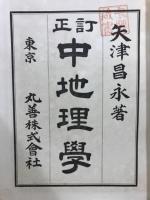 矢津昌永著
訂正
中地理學
東京
丸善株式會社